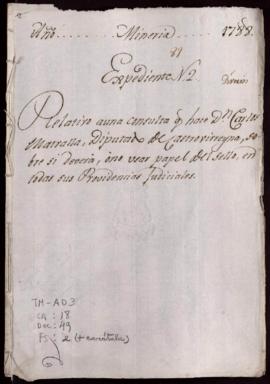 Año..... Mineria..... 1788.
Expediente N.2
Relativo a una consulta q hace Dn. Carlos
Matralla, Diputado de Castrovirreyna, so
bre si deveria, ó no usar papel del sello, en
todas sus Providencias Judiciales.
TM-AD3
CA: 18
Doc: 49
Fs: 2 (+ carátula)